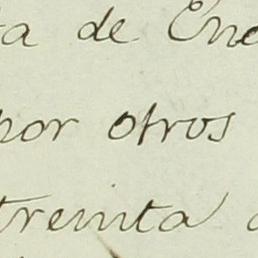 ta de Ene
por otros
treinta